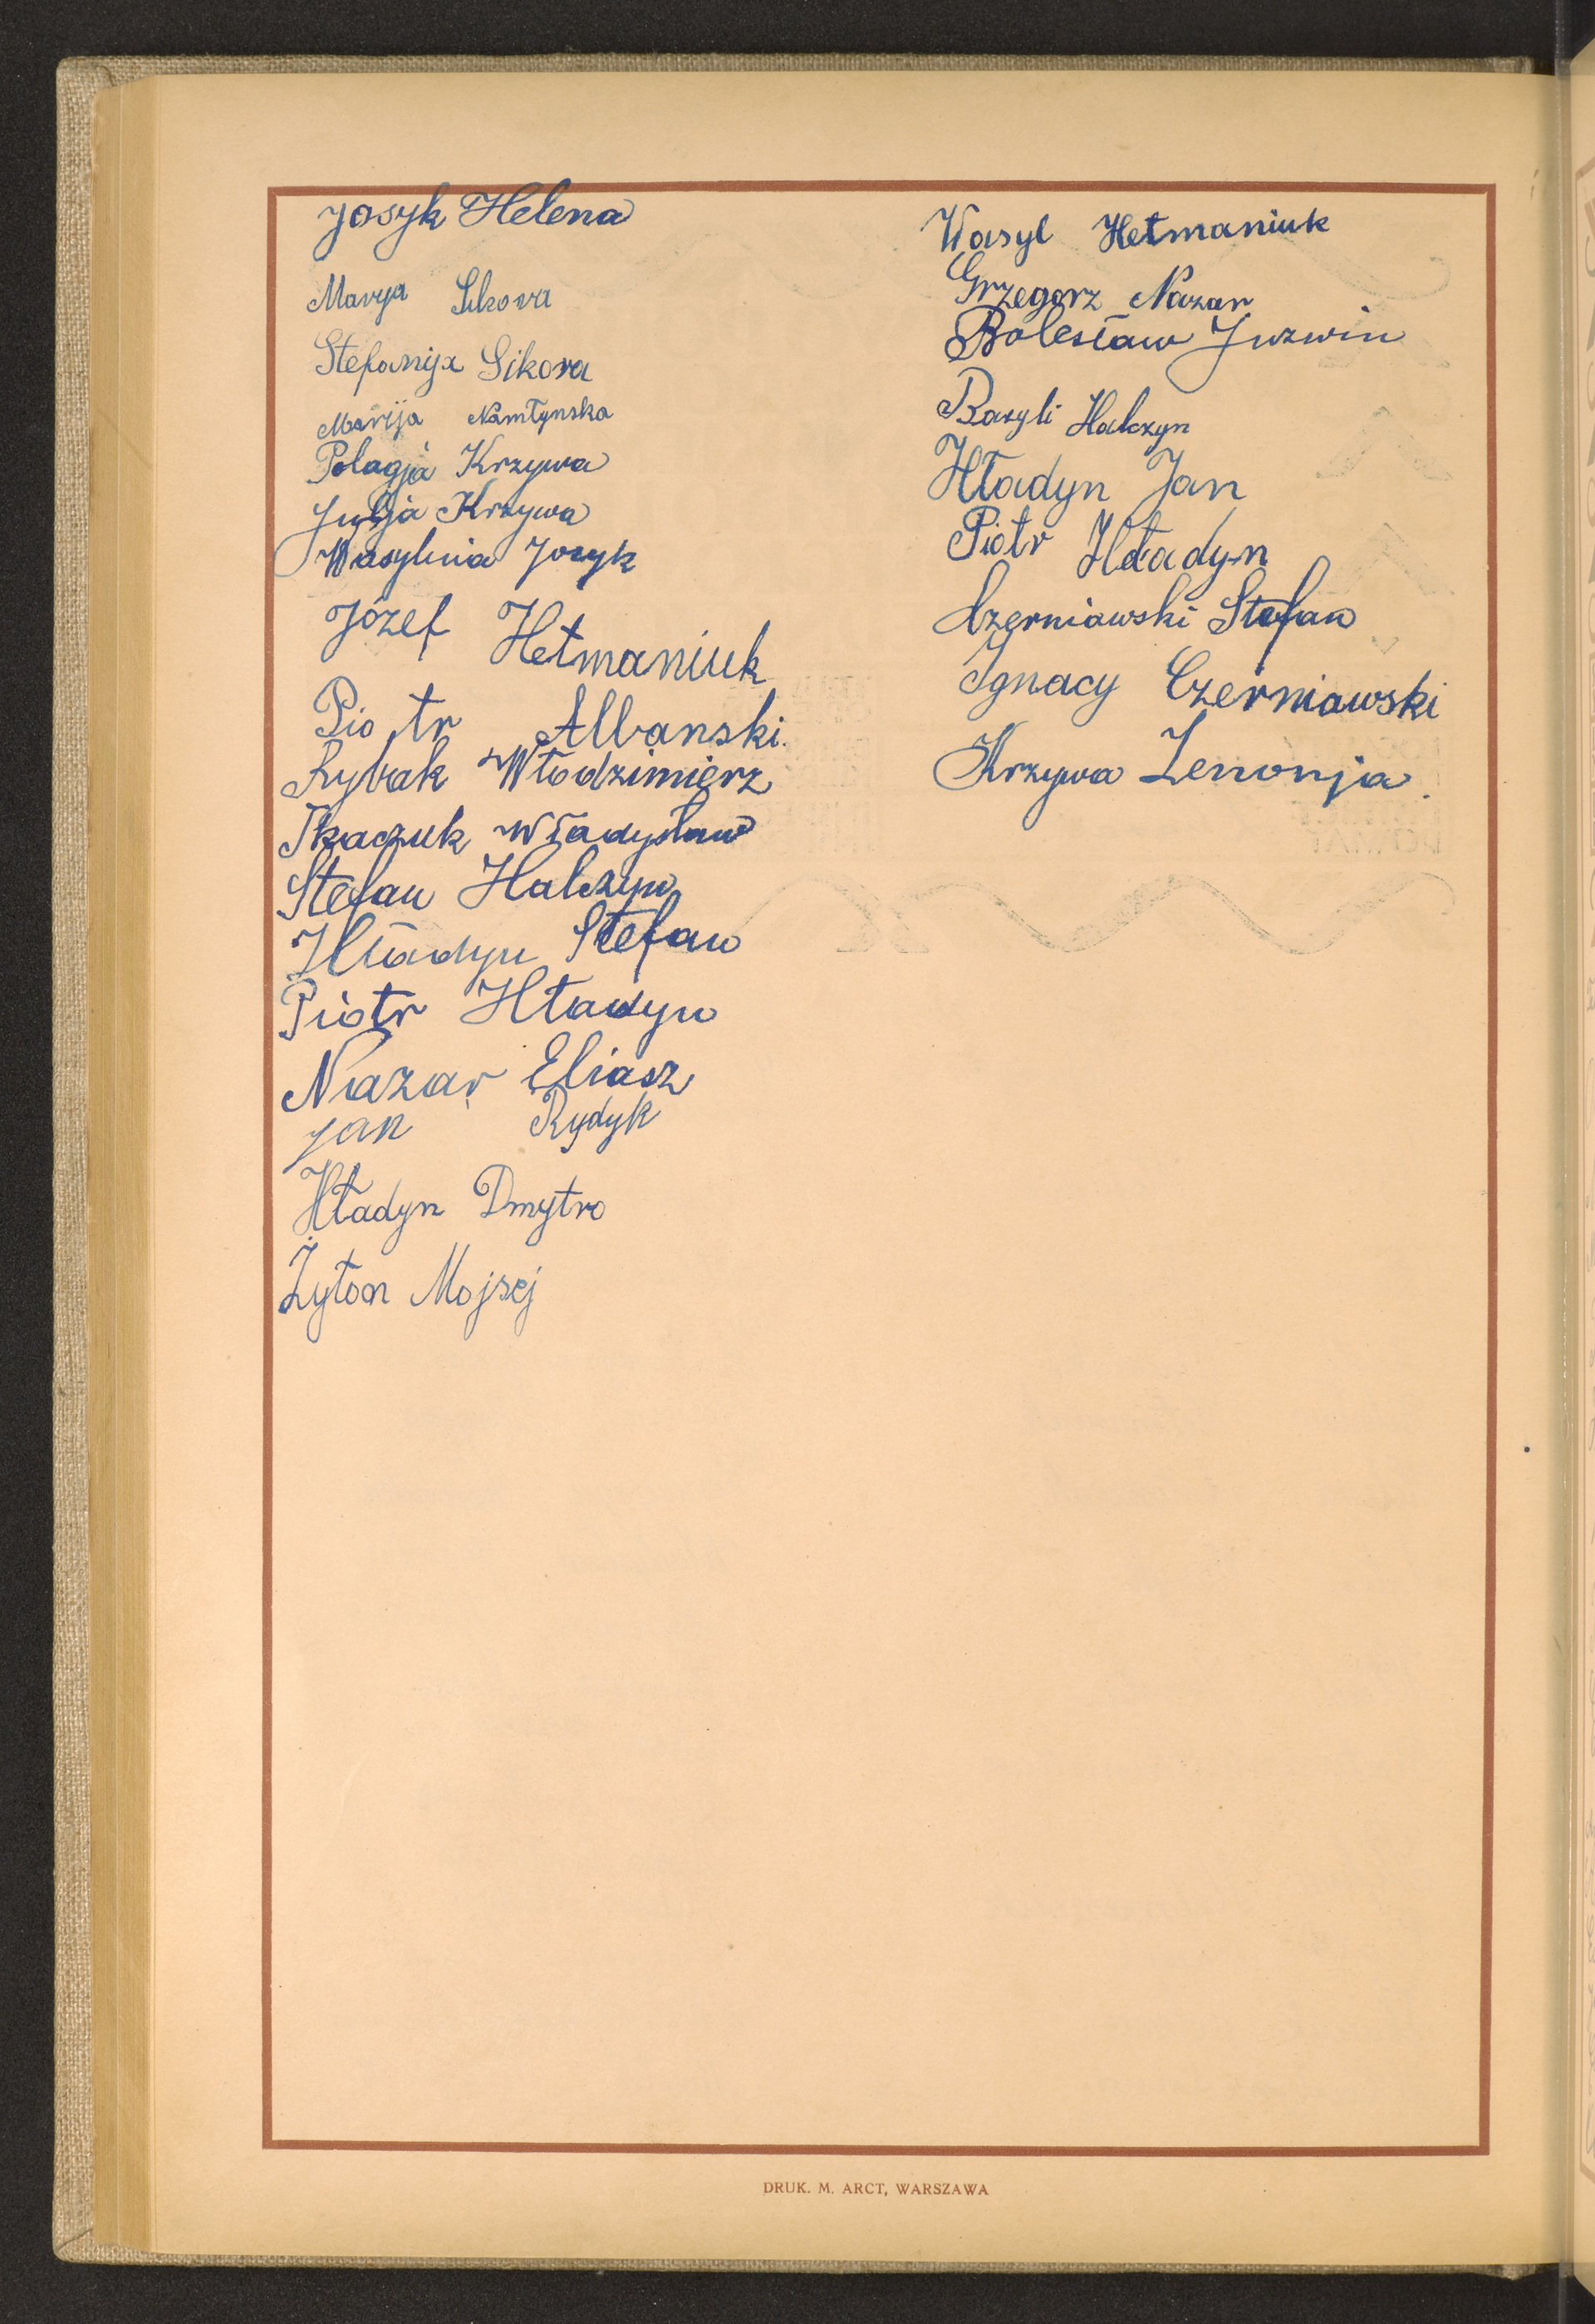 Josyk Helena
Marya Sikora
Stefanija Sikora
Marija Namłynska
Polagja Krzywa
Julja Krzywa
Wasylina Josyk
Józef Hetmaniuk
Piotr Albanski.
Rybak Włodzimierz
Tkaczuk Władysław
Stefan Halczyn
Hładyn Stefan
Piotr Hładyn
Nazar Eliasz
Jan Rydyk
Hładyn Dmytro
Żyton Mojsej
Wasyl Hetmaniuk
Grzegorz Nazar
Bolesław Juzwin
Bazyli Halczyn
Hładyn Jan
Piotr Hładyn
Czerniawski Stefan
Ignacy Czerniawski
Krzywa Zenonja.
DRUK. M. ARCT, WARSZAWA